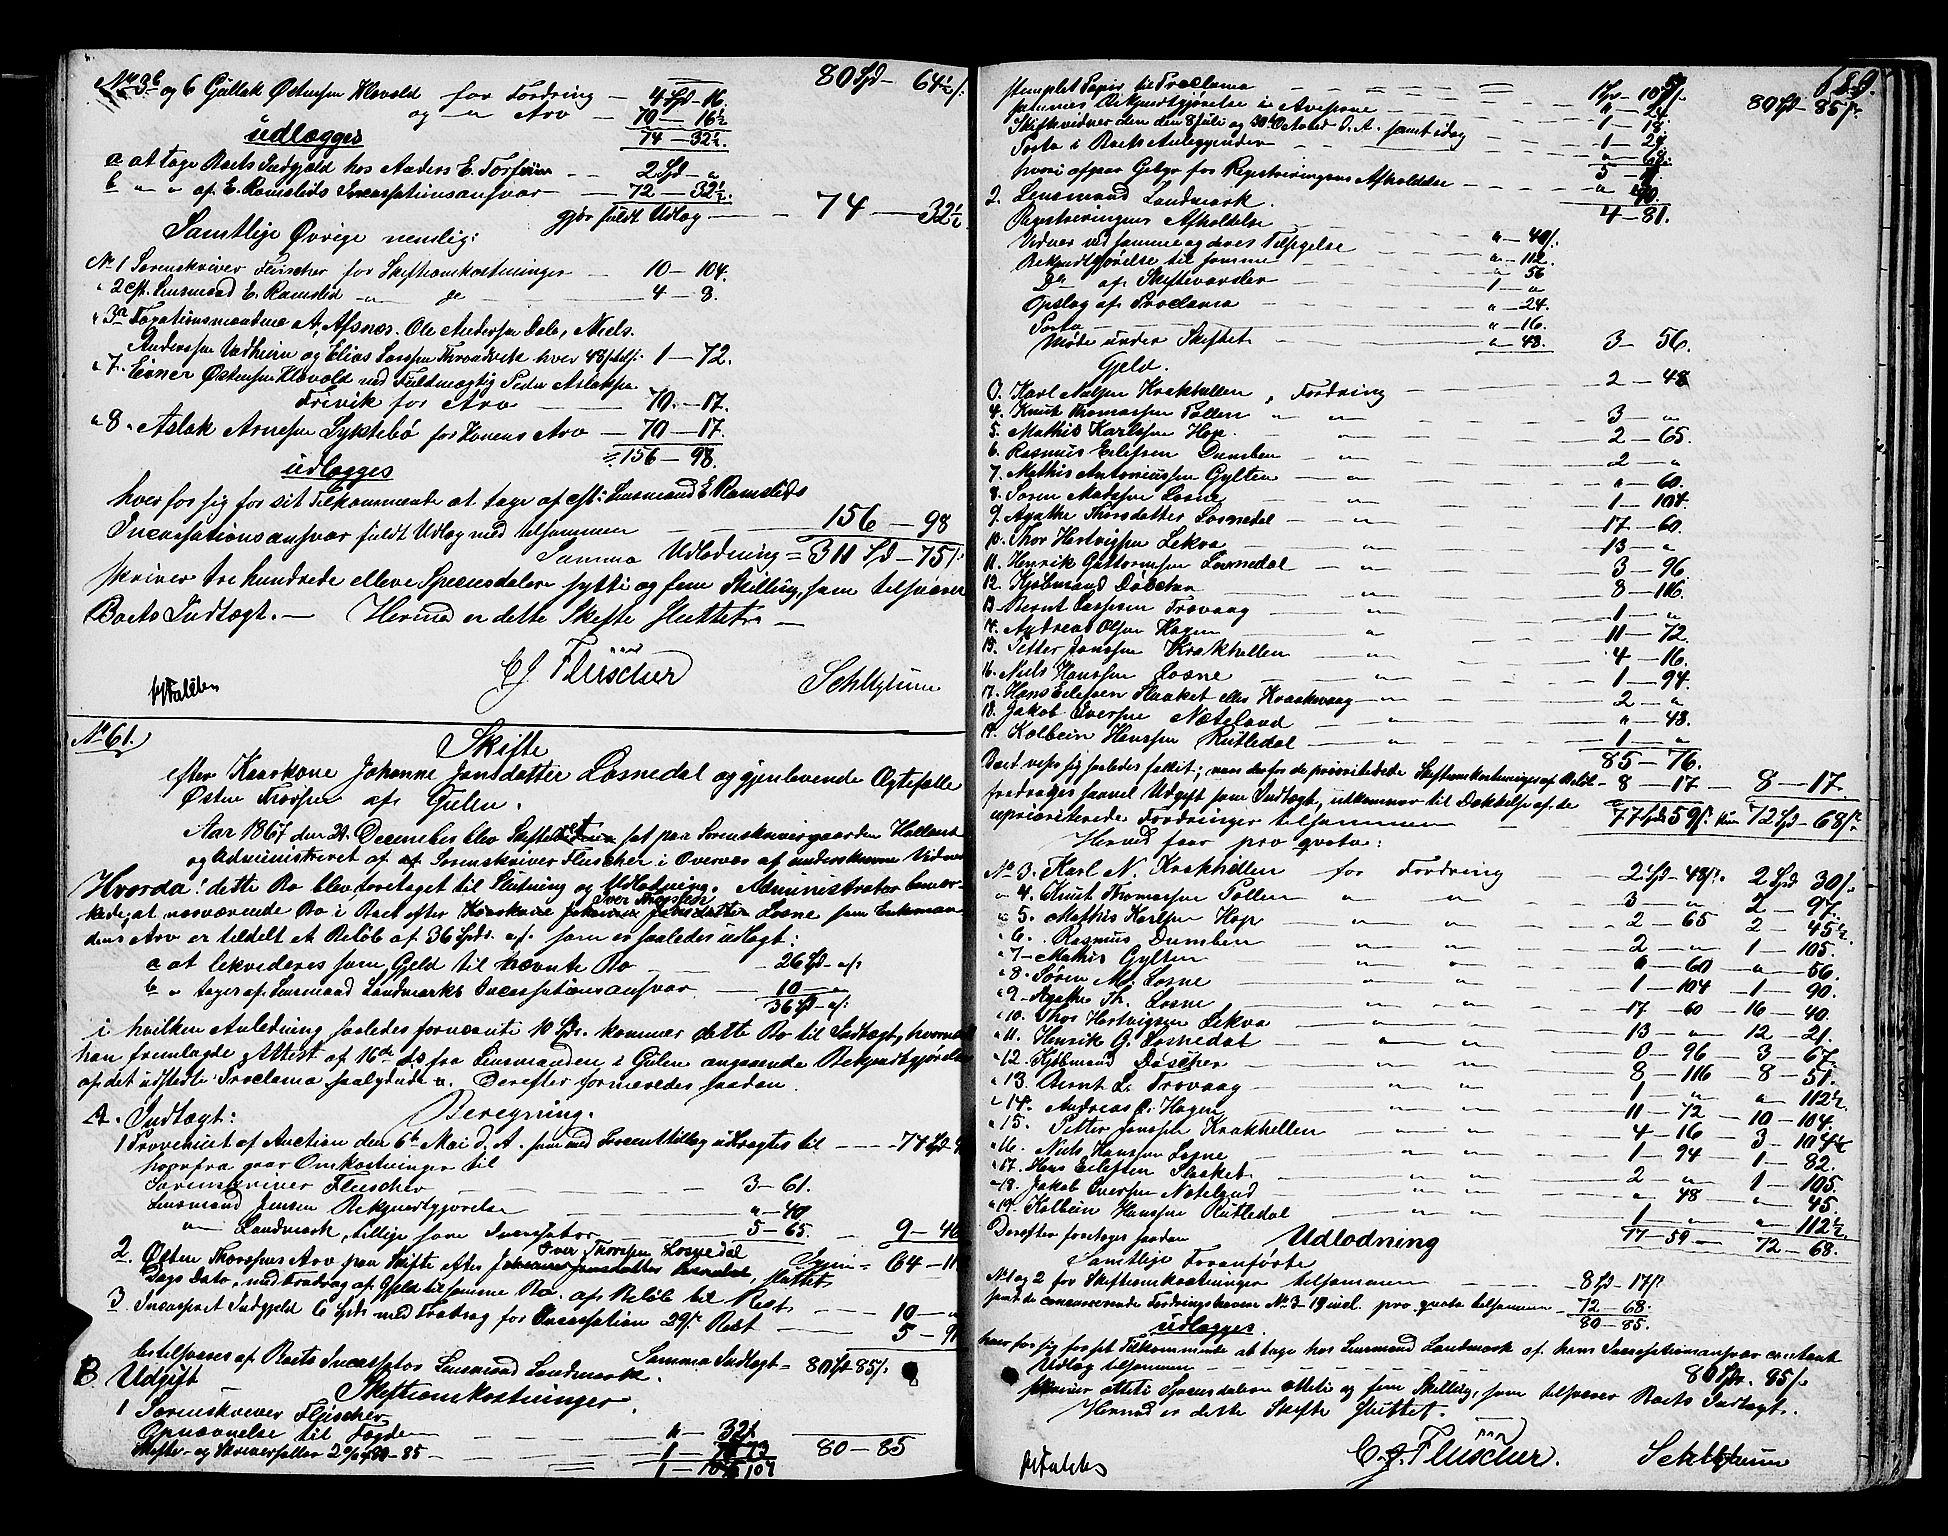 80 Spd - 64½ s.
No 3b og 6 Gullak Østensen Klevold for Fordring - 4 Spd - 16.
og " Arv - 70 - 16½
udlægges 74 - 32½.
a at tage Boets Indgjeld hos Anders E. - - 2 Spd - "
b " " af E. Ramslids Incassationsansvar - 72 - 32½.
gjør fuldt Udlog - - 74 - 32½
Samtlige Øvrige nemlig:
No 1 Sorenskriver Fleischer for Skifteomkostninger - 10 - 104.
" 2 cst. Lensmand E. Ramslid " do - 4 - 8.
" 3a Taxationsmændene A. Afsnæs. Ole Andersen Dale, Niels
Anderssen Vadheim og Elias Larssen hver 48 s tils: 1 - 72.
" 7. Eener Østensen Klevold ved Fuldmægtig Peder Aslaksen
for Arv - 70 - 17.
" 8. Aslak Arnesen Lyktebø for Konens Arv - 70 - 17.
156 - 98.
udlægges
hver for sig for sit Tilkommende at tage af cst: Lensmand E. Ramslids
Incassationsansvar fuldt Udlog med tilsammen - - 156 - 98
Summa Udlodning = 311 Spd - 75 s.
skriver tre hundrede elleve Speciesdaler sytti og fem Skilling, som tilsvarer
Boets Indtægt. - Hermed er dette Skifte sluttet. -
C J Fleischer
No 61. Skifte
efter Kaarkone Johanne Jansdatter Losnedal og gjenlevende Ægtefælle
Østen Thorsen af Gulen.
Aar 1867 den 31. December blev Skifteret sat paa Sorenskrivergaarden
og administreret af af Sorenskriver Fleischer i Overvær af underskrevne Vidner
Hvorda: dette Bo blev foretaget til Slutning og Udlodning. Administrator bemær-
kede, at nærværende Bo i Boet efter Iver Thorssen Losne som Enkeman-
dens Arv er tildelt et Beløb af 36 Spd. " s. som er saaledes udlagt:
a at lekvideres som Gjeld til nævnte Bo - - 26 Spd - " s.
b " tages af Lensmand Landmarks Incassationsansvar - 10 - "
36 Spd - " s:
i hvilken Anledning saaledes fornævnte 10 Spd. kommer dette Bo til Indtægt, hvorved
han fremlagde Attest af 16de ds fra Lensmanden i Gulen angaaende Bekjendtgjørelse
af det udstedte Proclama saalydende ". Derefter formeredes saadan
Beregning.
A. Indtægt:
1 Provenuet af Auction den 6te Mai d. A. som med Procenttillæg udbragtes til - 74 Spd
hvorfra gaar Omkostninger til
Sorenskriver Fleischer - 3 - 61.
Lensmand Jensen Bekjendtgjørelse - " - 40
" Landmark, tillige som Incassator - 5 - 65. - 9 - 46
Igjen = 64 - 11
2. Østen Thorsens Arv paa Skifte efter Iver Thorssen Losnedal sluttet
Dags Dato, med Fradrag af Gjeld til samme Bo. af Beløb til Rest - 10 - "
3 Incasseret Indgjeld 6 Spd. med Fradrag for Incassation 29 s. Rest - 5 -
Summa Indtægt = 80 Spd 85 s.
bestilsvares af Boets Incassator Lensmand Landmark.
B. Udgift
Skifteomkostninger.
1 Sorenskriver Fleischer
Opnævnelse til Fogden - " - 32.
Skifte- og Skriversalær - 1 - 73 80 - 85

689.
stemplet Papir til Proclama - 1 Spd - 107 s. 80 Spd - 85 s.
sammes Bekjendtgjørelse i Aviserne - " - 24
Skiftevidner den 8 Juli og 30 October d. A. samt idag - 1 - 18.
Porto i Boets Anliggender - 1 - 24.
hvori afgaar Gebyr for Registreringens Afholdelse - " - 40.
4 - 81.
2. Lensmand Landmark.
Registreringens Afholdelse " - 40 s.
Vidner ved samme og deres Tilsigelse " - 112.
Bekjendtgjørelse til samme " - 56
Do af Skiftevarsler 1 - "
Opslag af Proclama " - 24.
Porto " - 16.
Møde under Skiftet " - 48. 3 - 56.
Gjeld.
3. Karl Nielsen Krakhellen, Fordring - 2 - 48
4. Knut Thomassen Pollen " " 3 - "
5. Mathis Karlssen Hop. " 2 - 65.
6. Rasmus Eilefsen Dumben " 2 - "
7. Mathis Antoniussen Gylten " " - 60.
8. Søren Madssen Losne " 1 - 104.
9. Agathe Thorsdatter Losnedal " 17 - 60.
10. Thor Hertvigsen Lekva " 13 - "
11. Henrik Guttormsen Losnedal " 3 - 96
12. Kjøbmand Døscher " 8 - 116
13. Bernt Larssen Trovaag " 1 - "
14. Andreas Olsen Hagen " 11 - 72.
15. Petter Janssen Krakhellen " 4 - 16.
16. Niels Hanssen Losne " 1 - 94.
17. Hans Eilefsen Slaaket eller Kraakevaag " 2 - "
18. Jakob Iverssen Næteland " " - 48.
19. Kolbein Hanssen Rutledal " 1 - "
85 - 76.
Boet viser sig saaledes fallit; naar derfor de prioriterede Skifteomkostninger af Beløb - 8 - 17 - 8 - 17.
fradrages saavel Udgift som Indtægt, udkommer til Dækkelse af de
uprioriterede Fordringer tilsammen - 77 Spd 59 s. kun 72 Spd - 68 s.
Herved faar pro qvota:
No 3. Karl N. Krakhellen for Fordring 2 Spd - 48 s. 2 Spd 30 s.
" 4. Knut Thomassen Pollen " " 3 - " 2 - 97.
" 5. Mathis Karlsen Hop " " 2 - 65 2 - 45½.
" 6. Rasmus Dumben " " 2 - " - 1 - 105.
" 7. Mathis Gylten " " " - 60 - " - 56.
" 8. Søren M. Losne " " 1 - 104 - 1 - 90.
" 9. Agathe Th. Losne " " 17 - 60 - 16 - 40.
" 10. Thor Hertvigsen Lekva " " 13 - " 12 - 21.
" 11. Henrik G. Losnedal " " 3 - 96 - 3 - 67.
" 12. Kjøbmand Døscher " " 8 - 116 - 8 - 51.
" 13. Bernt L. Trovaag " " 1 - " " - 112½.
" 14. Andreas O. Hagen " " 11 - 72 - 10 - 104.
" 15. Petter Janssen Krakhellen " " 4 - 16 - 3 - 104½
" 16. Niels Hanssen Losne " " 1 - 94 - 1 - 82.
" 17. Hans Eilefsen Slaaket " " 2 - " - 1 - 105.
" 18. Jakob Iverssen Næteland " " " 48 " - 45.
" 19. Kolbein Hanssen Rutledal " " 1 - " " - 112½
77 - 59 - 72 - 68.
Derefter foretoges saadan Udlodning
Samtlige Foranførte
No 1 og 2 for Skifteomkostninger tilsammen - 8 Spd - 17 s.
samt de concurrerende Fordringshavere No 3-19 incl. pro qvota tilsammen - 72 - 68.
80 - 85.
udlægges.
hver for sig for sit Tilkommende at tage hos Lensmand Landmark af hans Incassationsansvar contant
Udlog tilsammen - 80 Spd. 85 s.
skriver otteti Speciesdaler otteti og fem Skilling, som tilsvarer Boets Indtægt.
Hermed er dette Skifte sluttet.
C. J. Fleischer.